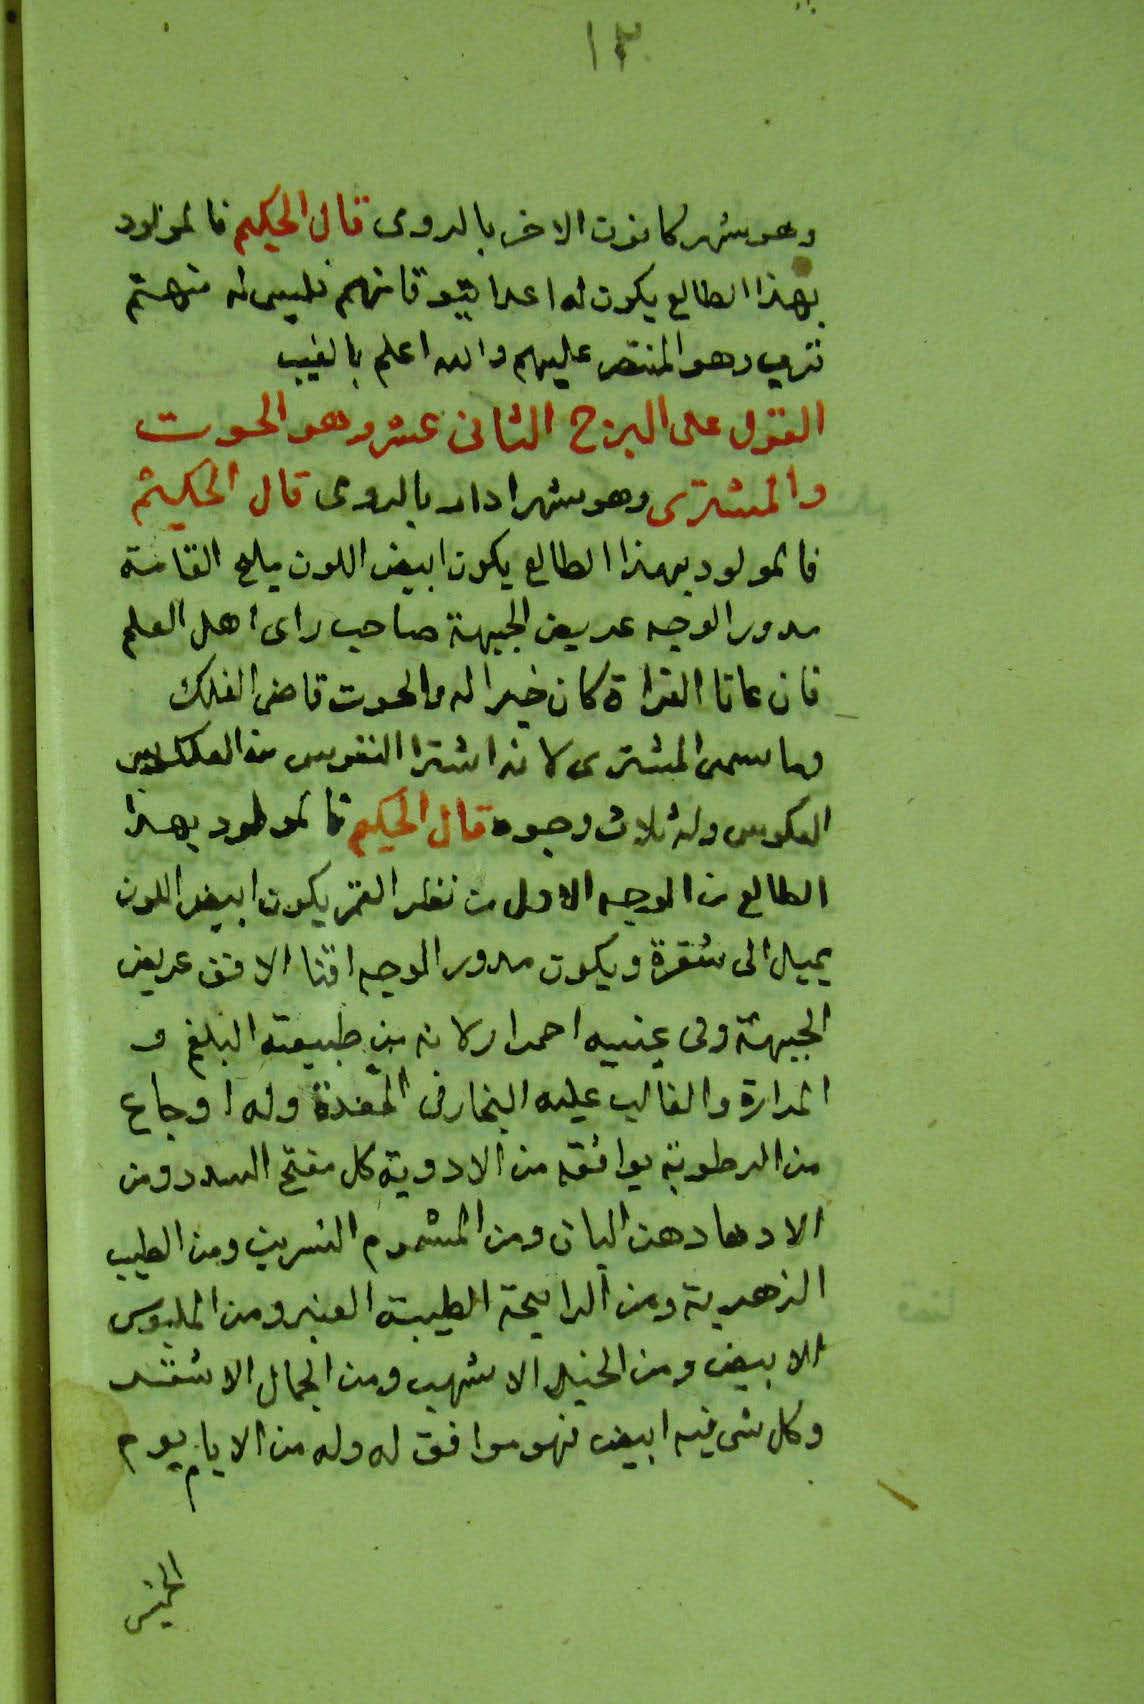 ١٣
وهو شهر كانون الاخر بالرومى قال الحكيم فالمولود
بهذا الطالع يكون له اعدا يتوقاهم فليس له منهم
قريب وهو المنتصر عليهم والله اعلم بالغيب
القول على البرج الثانى عشر وهو الحوت
والمشترى وهو شهر ادار بالرومى قال الحكيم
فالمولود بهذا الطالع يكون ابيض اللون مليح القامة
مدور الوجه عريض الجبهة صاحب راى اهل العلم
فان عانا القراة كان خيرا له والحوت قاضى الفلك
وما سمى المشترى لانه اشترا النفوس من
العكوس وله ثلاث وجوه قال الحكيم فالمولود بهذا
الطالع من الوجه الاول من نظر القمر يكون ابيض اللون
يميل الى شقرة ويكون مدور الوجه اقنا الانف عريض
الجبهة وفى عينيه احمرار لانه من طبيعته البلغم و
المرارة والغالب عليه البخار فى المعدة وله اوجاع
من الرطوبة يوافقه من الادوية كل مفتح السدد ومن
الادها دهن البان ومن المشموم النسرين ومن الطيب
الزهرية ومن الرايحة الطيبة العنبر ومن الملبوس
الابيض ومن الخيل الاشهب ومن الجمال الاشقر
وكل شى فيه ابيض فهو موافق له وله من الايام يوم
الخميس